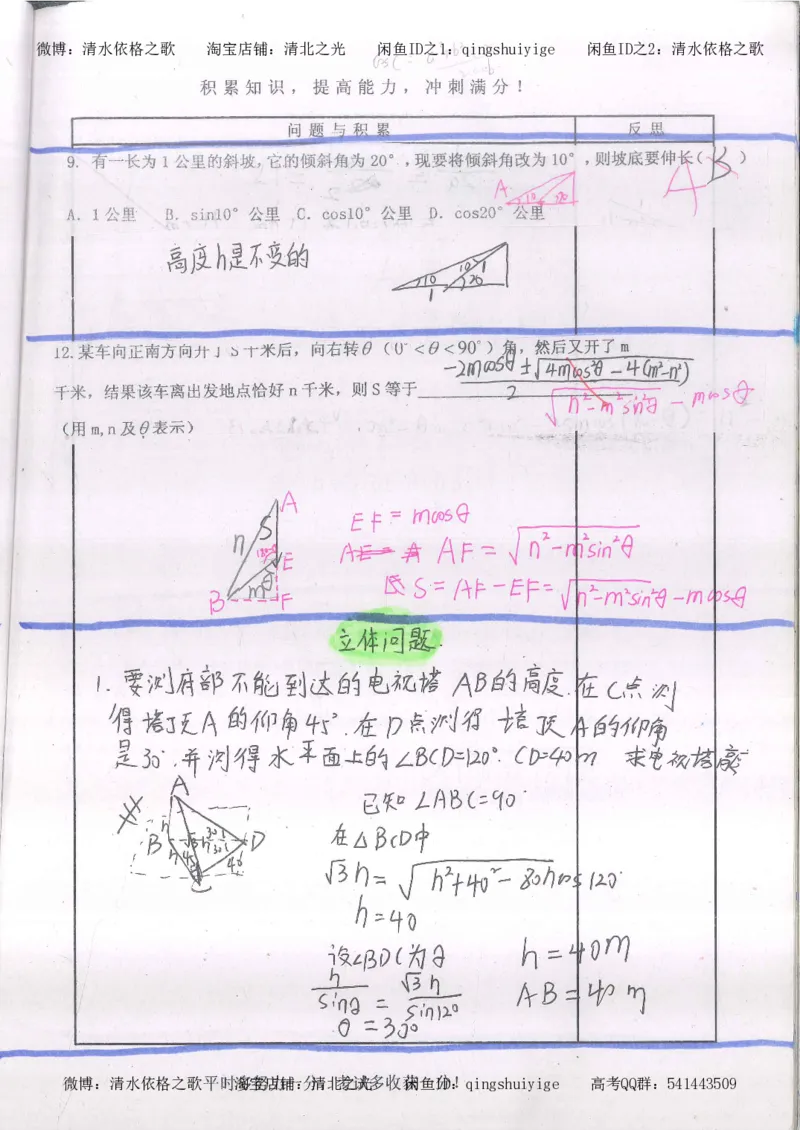 微博：清水依格之歌 淘宝店铺：清北之光 闲鱼ID之1：qingshuiyige 闲鱼ID之2：清水依格之歌
积累知识，提高能力，冲刺满分！
问题与积累 反思
9. 有一长为1公里的斜坡,它的倾斜角为20°,现要将倾斜角改为10°,则坡底要伸长( B )
A
A 10 20
A. 1公里 B. sin10°公里 C. cos10°公里 D. cos20°公里
高度h是不变的
10 1
10 20
1
12.某车向正南方向开了S千米后，向右转θ（0°<θ<90°）角，然后又开了m
-2mcosθ±√4mcos²θ-4(m²-n²)
2
千米，结果该车离出发地点恰好n千米，则S等于
√n²-m²sin²θ - mcosθ
（用m,n及θ表示）
A
n S
E
θ
m
B F
EF=mcosθ
AF=√n²-m²sin²θ
S=AF-EF=√n²-m²sin²θ-mcosθ
立体问题
1. 要测底部不能到达的电视塔AB的高度.在C点测
得塔顶A的仰角45°.在D点测得塔顶A的仰角
是30°.并测得水平面上的∠BCD=120°. CD=40m 求电视塔高
A
B D
C
已知∠ABC=90°
在△BCD中
√3h=√h²+40²-80hcos120°
h=40
设∠BDC为θ h=40m
h/sinθ=√3h/sin120 AB=40m
θ=30°
微博：清水依格之歌 淘宝店铺：清北之光 闲鱼ID：qingshuiyige 高考QQ群：541443509